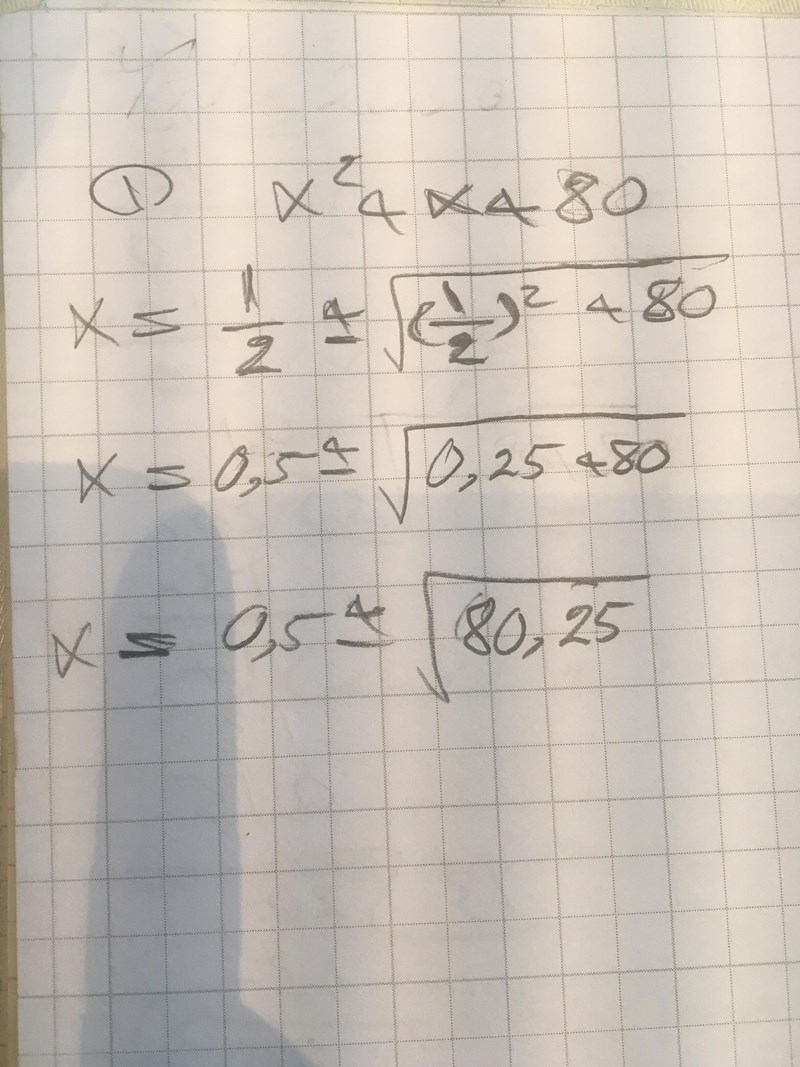 ① x² + x + 80
x = 1/2 ± √((1/2)² + 80)
x = 0,5 ± √(0,25 + 80)
x = 0,5 ± √(80,25)